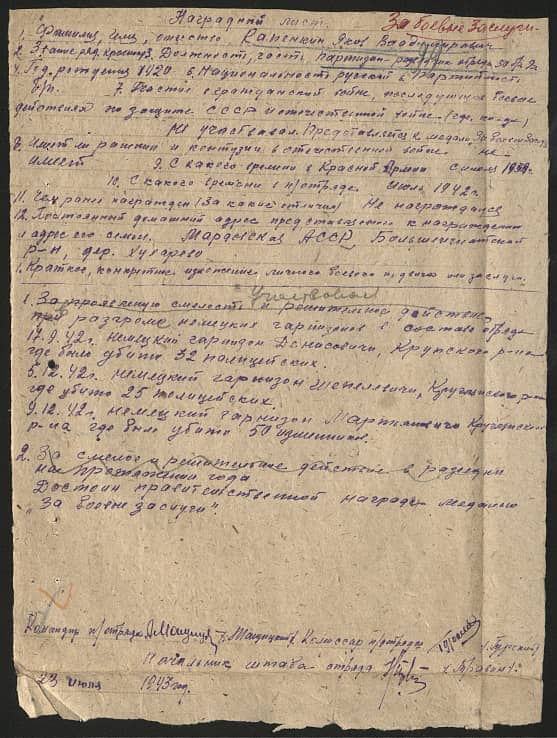 Наградной лист. За боевые заслуги.
1. Фамилия, имя, отчество Капенкин Яков Владимирович
2. Звание 3. Должность, часть партизан-разведчик
4. Год рождения 1920 5. Национальность русский 6. Партийность
б/п. 7. Участие в гражданской войне, последующих боевых
действиях по защите СССР и отечественной войне (где, когда)
Не участвовал. Представляется к медали „За Боевые Заслуги“
8. Имеет ли ранения и контузии в отечественной войне не
имеет 9. С какого времени в Красной Армии с 1939г.
10. С какого времени в п/отряде Июль 1942г.
11. Чем ранее награжден (за какие отличия) Не награждался
12. Постоянный домашний адрес представляемого к награждению
и адрес его семьи. Мордовская АССР Больше
р-н, дер.
1. Краткое, конкретное изложение личного боевого подвига или заслуг.
Участвовал
1. За проявленную смелость и решительное действие
при разгроме немецких гарнизонов в составе отряда
17.9.42г. немецкий гарнизон Денисовичи, Крупского р-на
где было убито 32 полицейских.
5.12.42г. немецкий гарнизон Шепелевичи, Круглянского р-на
где убито 25 полицейских.
9.12.42г. немецкий гарнизон Круглянского
р-на где было убито 50 изменников.
2. За смелое и решительное действие в разведке
на протяжении года
Достоин правительственной награды медалью
„За боевые заслуги“.
Командир п/отряда Комиссар п/отряда
Начальник штаба отряда
23 июля 1943 год.